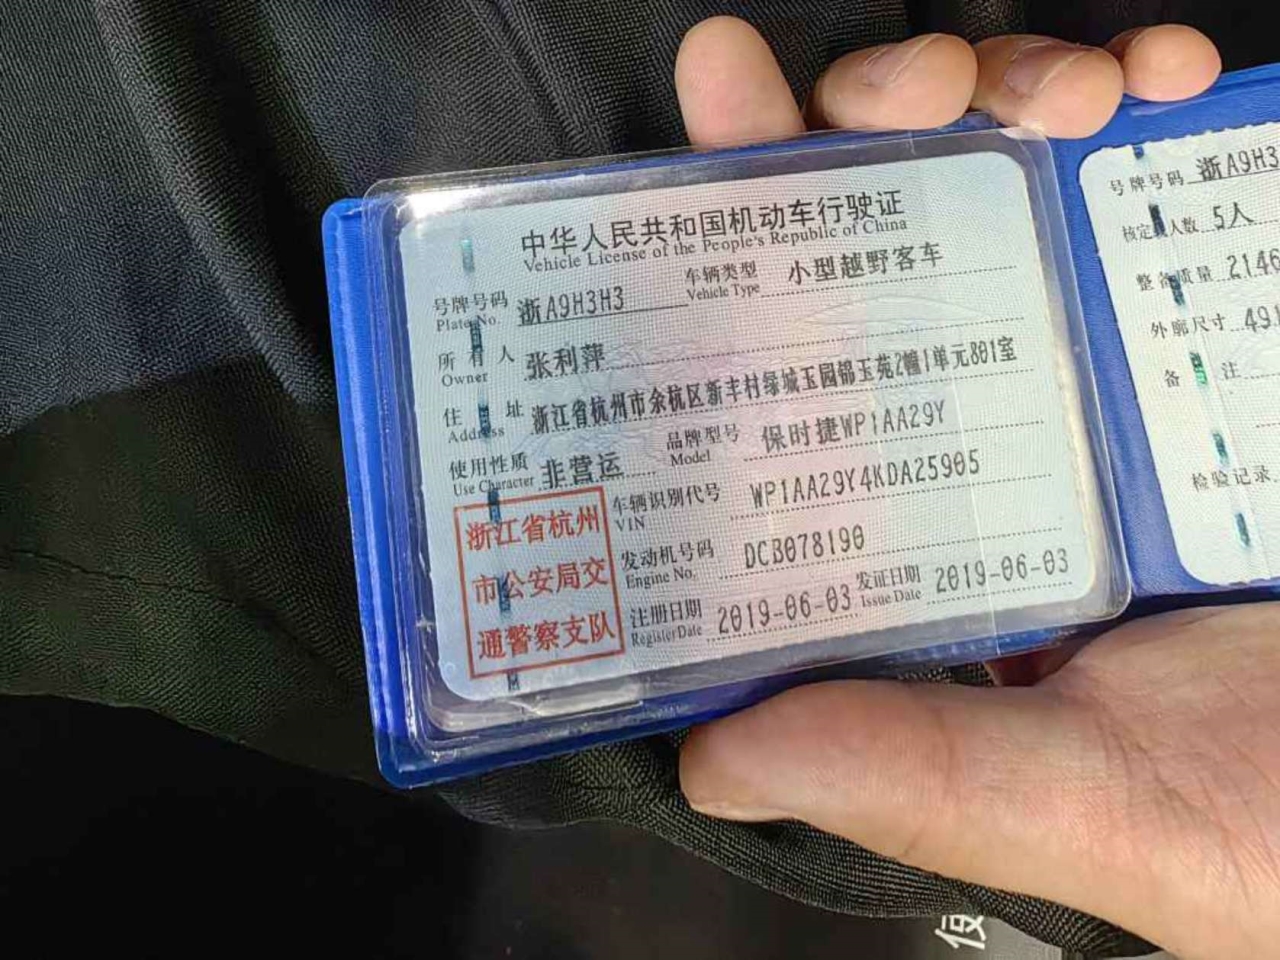 中华人民共和国机动车行驶证
Vehicle License of the People's Republic of China
号牌号码 浙A9H3H3 车辆类型 小型越野客车
Plate No. Vehicle Type
所有人 张利萍
Owner
住址 浙江省杭州市余杭区新丰村绿城玉园锦玉苑2幢1单元801室
Address
使用性质 非营运 品牌型号 保时捷WP1AA29Y
Use Character Model
车辆识别代号 WP1AA29Y4KDA25905
VIN
发动机号码 DCB078190
Engine No.
注册日期 2019-06-03 发证日期 2019-06-03
Register Date Issue Date
浙江省杭州
市公安局交
通警察支队
号牌号码 浙A9H3
核定人数 5人
整备质量 2146
外廓尺寸 491
备注
检验记录